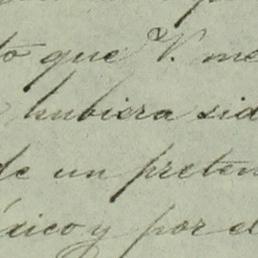 to que V. me
hubiera sid
de un preten
xico y por el